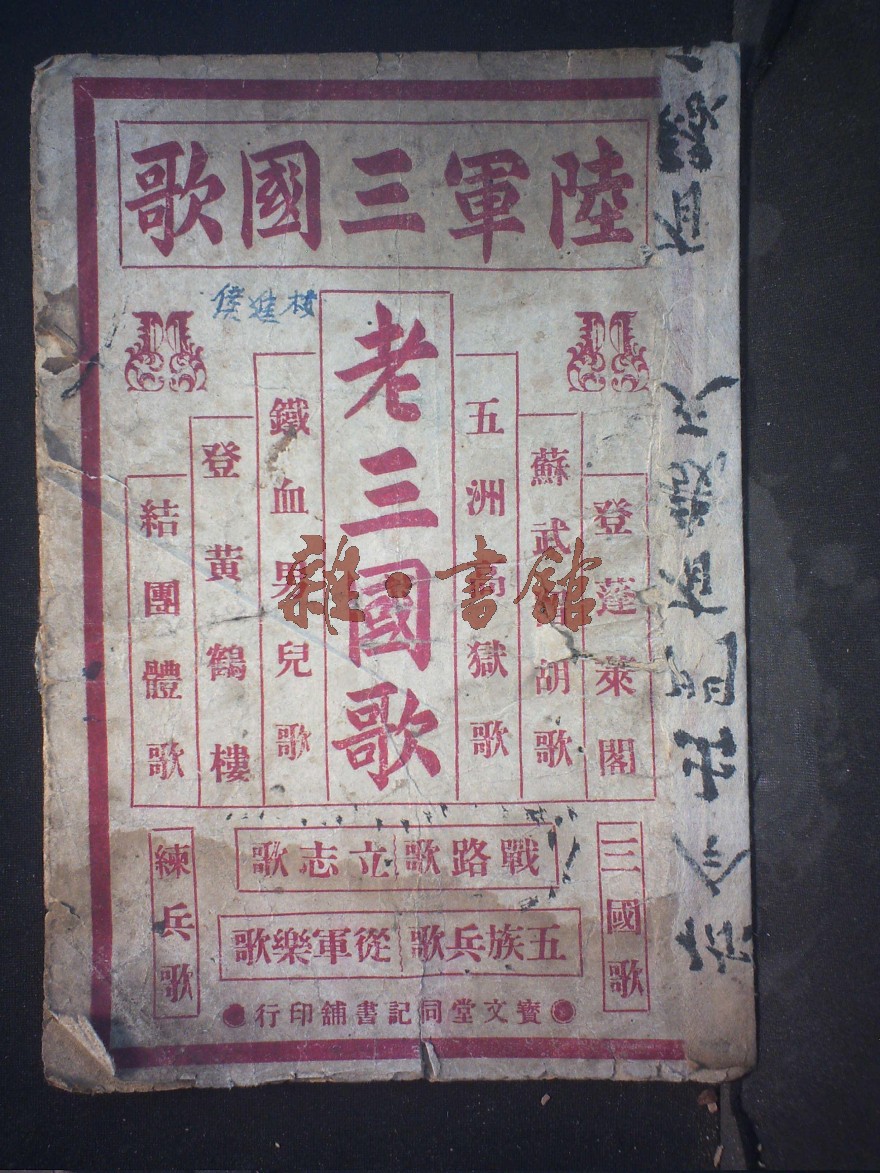 陸軍三國歌
登蓬萊閣
蘇武留胡歌
五洲高獄歌
老三國歌
鐵血男兒歌
登黃鶴樓
結團體歌
侯進材
三國歌
戰路歌 立志歌
五族兵歌 從軍樂歌
練兵歌
寶文堂同記書舖印行
雜·書館